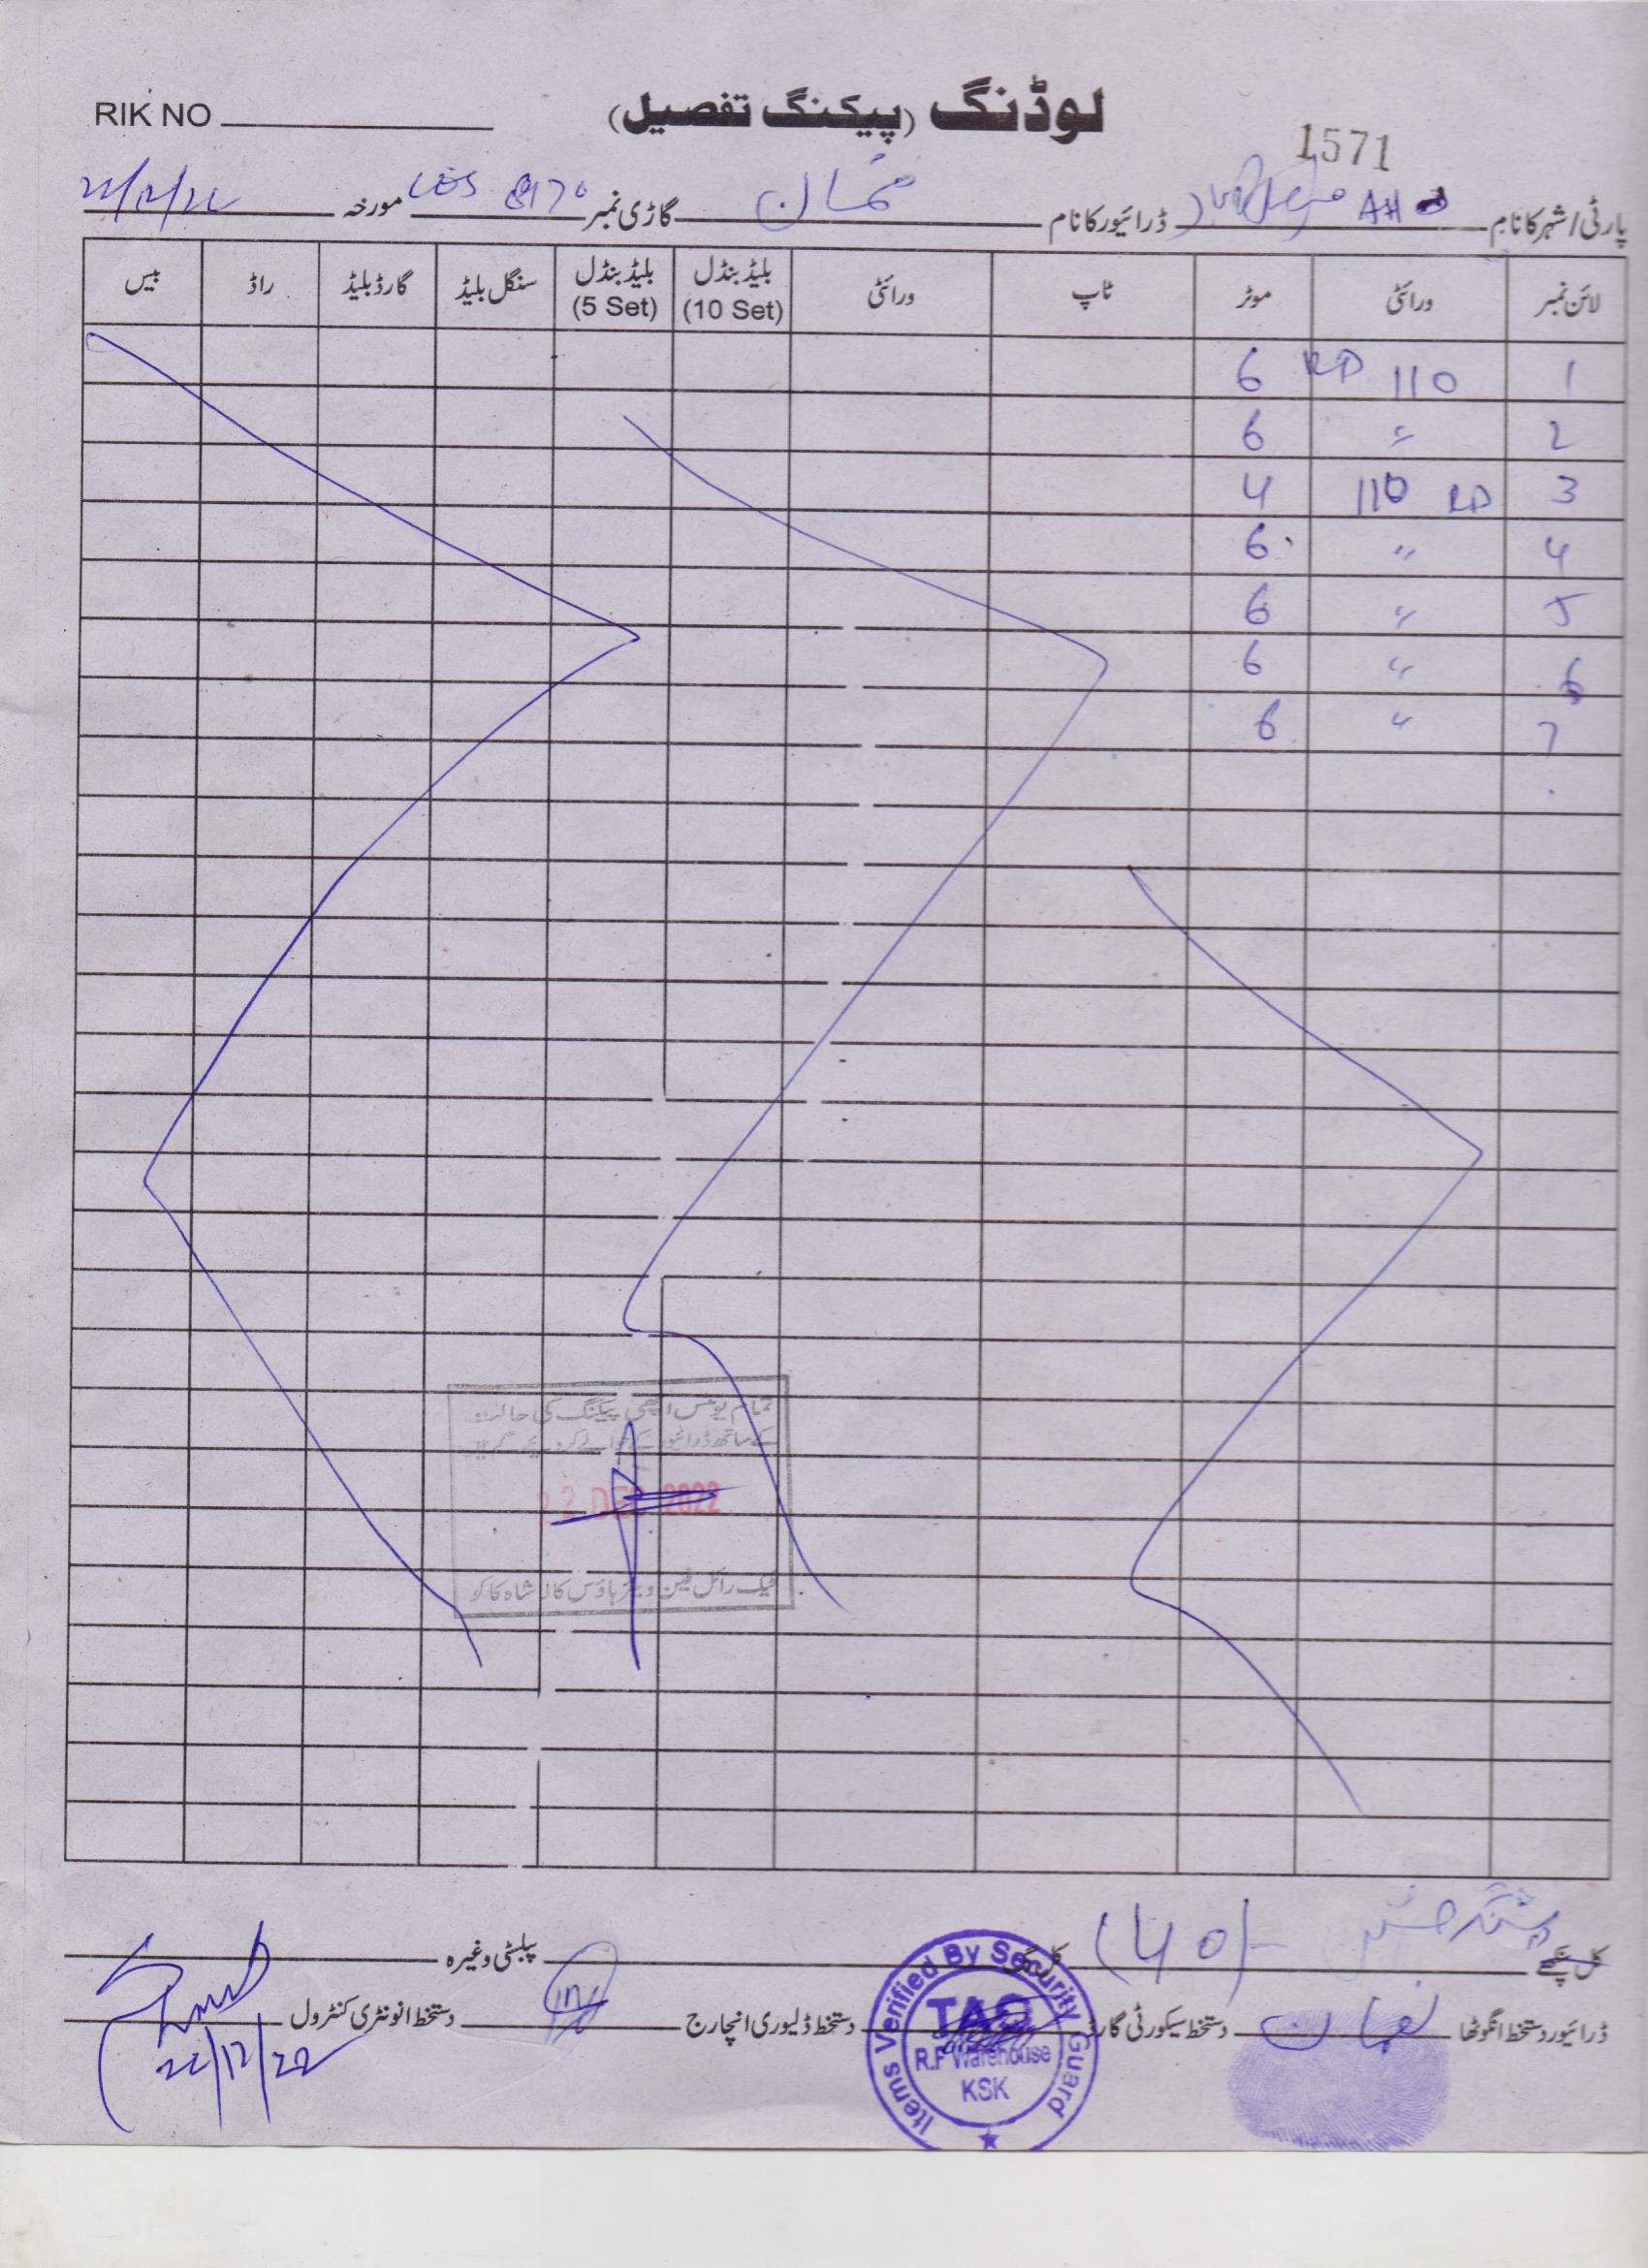 RIK NO
لوڈنگ (پیکنگ تفصیل)
1571
پارٹی/شہر کا نام AH ڈرائیور کا نام گاڑی نمبر LES 8170 مورخہ 22/12/22
لائن نمبر ورائٹی موٹر ٹاپ ورائٹی بلیڈ بنڈل (10 Set) بلیڈ بنڈل (5 Set) سنگل بلیڈ گارڈ بلیڈ راڈ بیس
1 110 RD 6
2 〃 6
3 110 RD 4
4 〃 6
5 〃 6
6 〃 6
7 〃 6
تمام یونٹس اچھی پیکنگ کی حالت
کے ساتھ ڈرائیور کے حوالے کر دیئے گئے ہیں
22 DEC 2022
رائل فین ویئر ہاؤس کالا شاہ کاکو
کل پنکھے (40) پبلسٹی وغیرہ
ڈرائیور دستخط انگوٹھا نعمان دستخط سیکورٹی گارڈ دستخط ڈلیوری انچارج دستخط انونٹری کنٹرول
22/12/22
Items Verified By Security Guard
TAS
R.F Warehouse
KSK